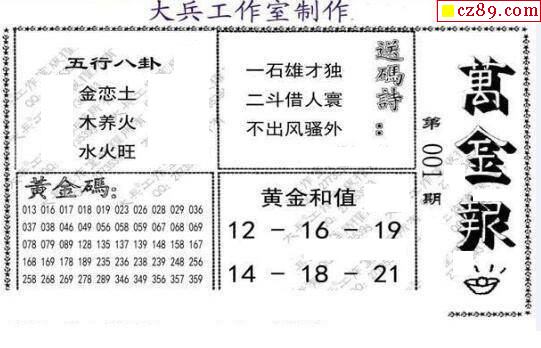 大兵工作室制作
cz89.com
五行八卦
金恋土
木养火
水火旺
送碼詩:
一石雄才独
二斗借人寰
不出风骚外
萬金報
第001期
黃金碼:
013 016 017 018 019 023 026 028 029 036
037 038 046 049 056 058 059 067 068 069
078 079 089 128 135 137 139 148 157 167
168 169 178 179 189 234 235 236 246 256
258 268 269 278 289 346 349 356 357 359
黄金和值
12 - 16 - 19
14 - 18 - 21